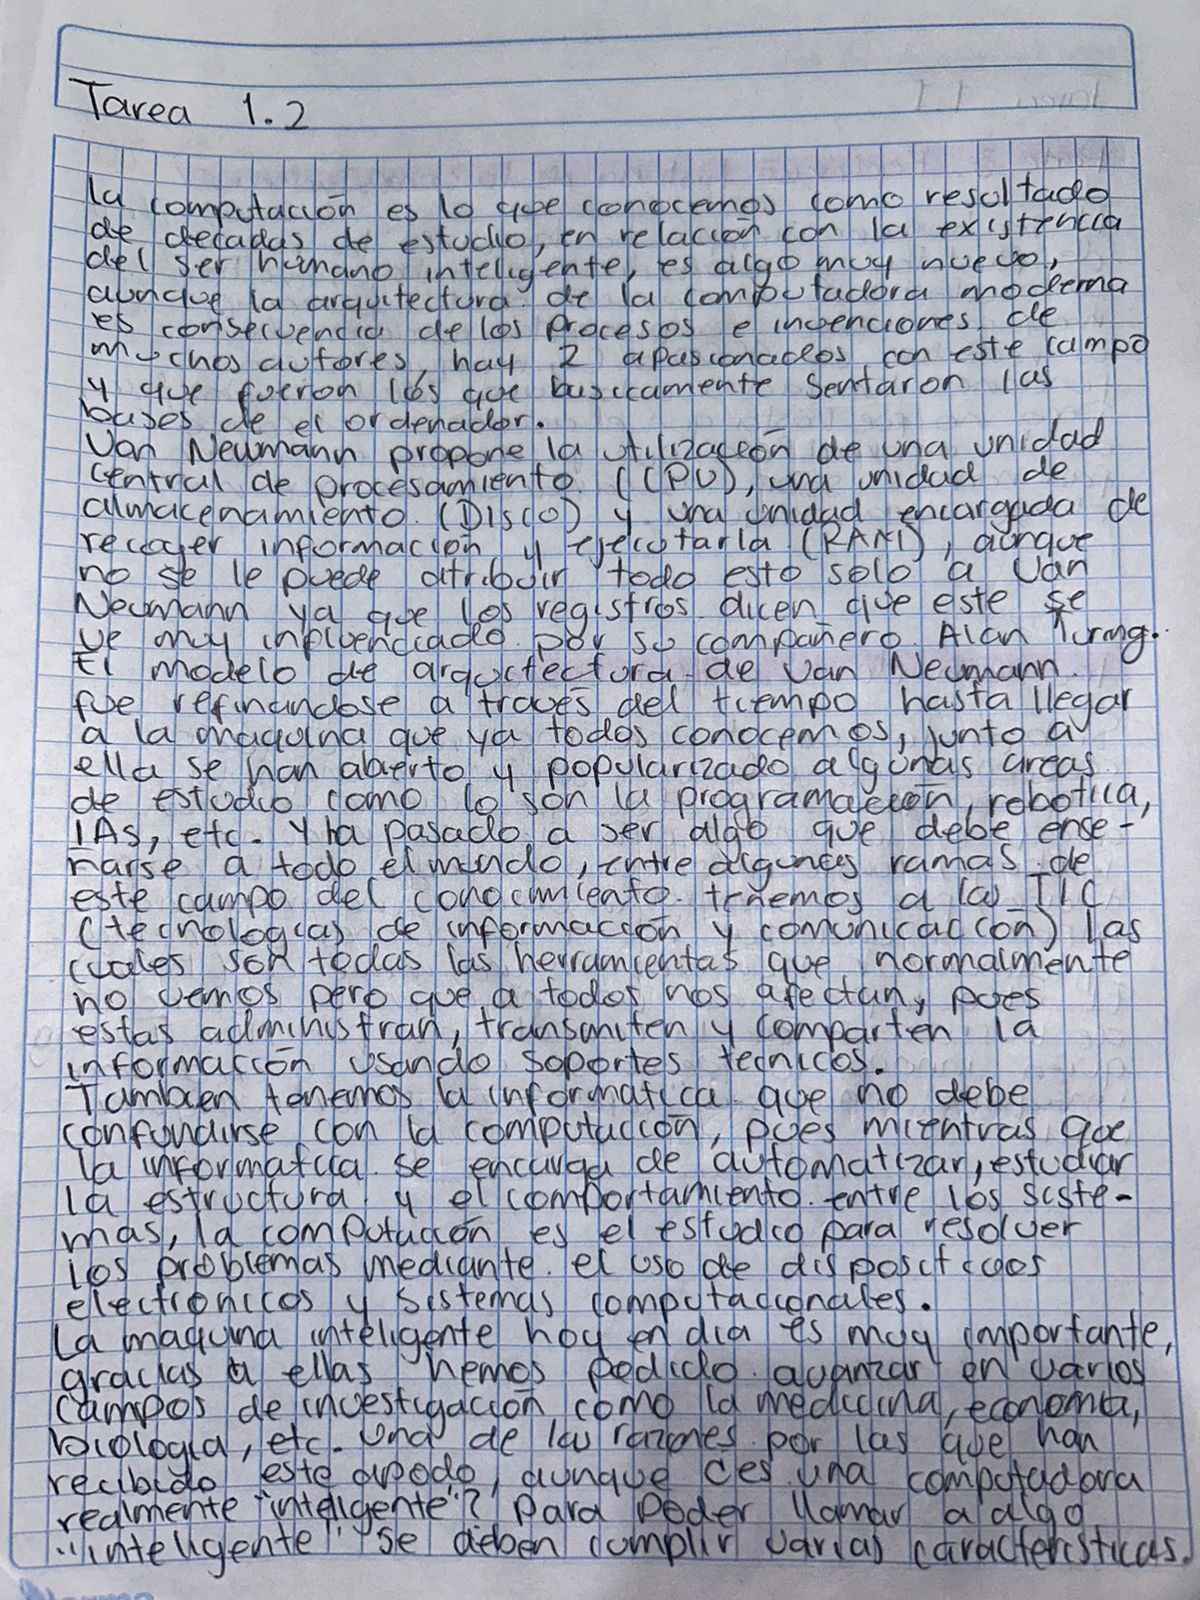 Tarea 1.2
la computación es lo que conocemos como resultado
de decadas de estudio, en relación con la existencia
del ser humano inteligente, es algo muy nuevo,
aunque la arquitectura de la computadora moderna
es consecuencia de los procesos e invenciones de
muchos autores, hay 2 apasionados con este campo
y que fueron los que basicamente sentaron las
bases de el ordenador.
Van Neumann propone la utilización de una unidad
central de procesamiento (CPU), una unidad de
almacenamiento (Disco) y una unidad encargada de
recoger información y ejecutarla (RAM), aunque
no se le puede atribuir todo esto solo a Van
Neumann ya que los registros dicen que este se
ve muy influenciado por su compañero Alan Turing.
El modelo de arquitectura de Van Neumann
fue refinandose a través del tiempo hasta llegar
a la maquina que ya todos conocemos, junto a
ella se han abierto y popularizado algunas areas
de estudio como lo son la programación, robotica,
IAs, etc. Y ha pasado a ser algo que debe ense-
ñarse a todo el mundo, entre algunas ramas de
este campo del conocimiento tenemos a las TIC
(tecnologias de información y comunicación) las
cuales son todas las herramientas que normalmente
no vemos pero que a todos nos afectan, pues
estas administran, transmiten y comparten la
información usando soportes tecnicos.
Tambien tenemos la informatica que no debe
confundirse con la computación, pues mientras que
la informatica se encarga de automatizar, estudiar
la estructura y el comportamiento entre los siste-
mas, la computación es el estudio para resolver
los problemas mediante el uso de dispositivos
electronicos y sistemas computacionales.
La maquina inteligente hoy en dia es muy importante,
gracias a ellas hemos podido avanzar en varios
campos de investigación como la medicina, economia,
biologia, etc. Una de las razones por las que han
recibido este apodo, aunque ¿es una computadora
realmente "inteligente"? Para poder llamar a algo
"inteligente" se deben cumplir varias caracteristicas.